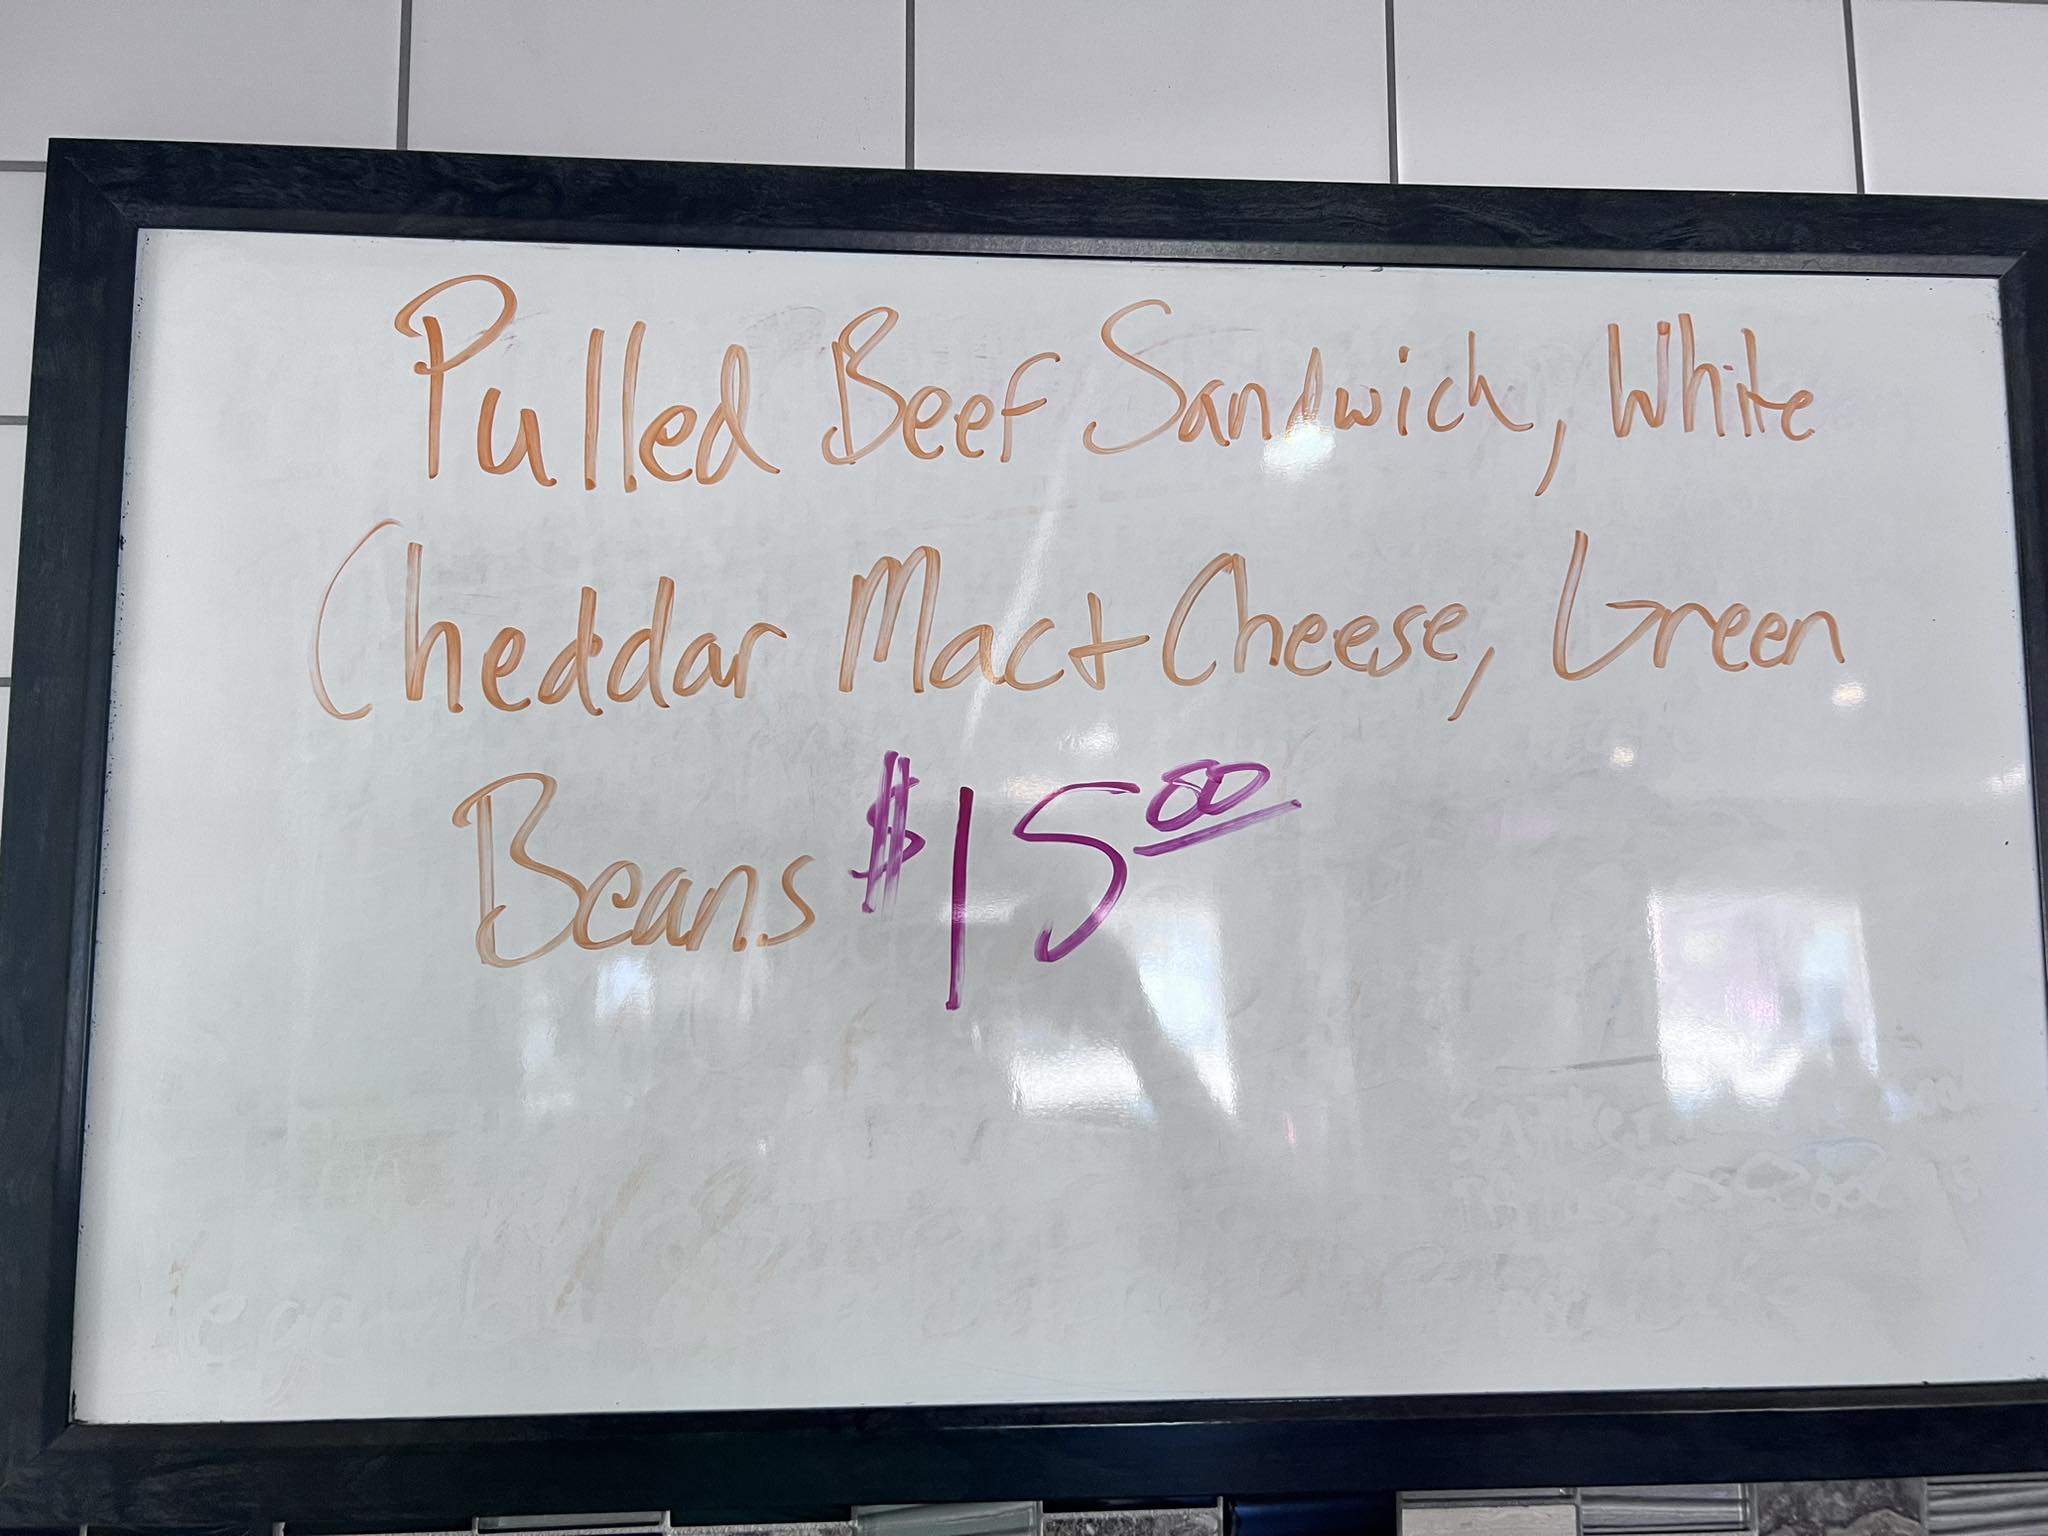 Pulled Beef Sandwich, White
Cheddar Mac + Cheese, Green
Beans $15.00